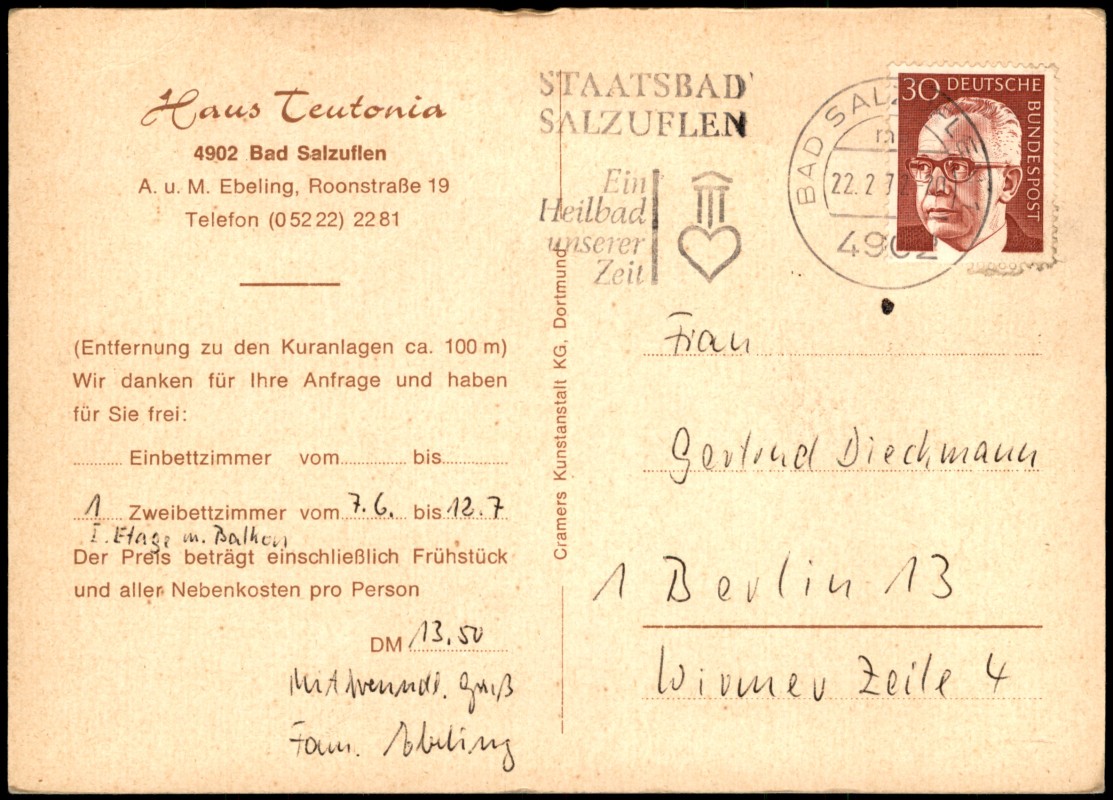 Haus Teutonia
4902 Bad Salzuflen
A. u. M. Ebeling, Roonstraße 19
Telefon (0 52 22) 22 81
(Entfernung zu den Kuranlagen ca. 100 m)
Wir danken für Ihre Anfrage und haben
für Sie frei:
............ Einbettzimmer vom................ bis................
1 Zweibettzimmer vom 7.6. bis 12.7
I. Etage m. Balkon
Der Preis beträgt einschließlich Frühstück
und aller Nebenkosten pro Person
DM 13.50
Mit freundl. Gruß
Fam. Ebeling
Cramers Kunstanstalt KG, Dortmund
STAATSBAD
SALZUFLEN
Ein
Heilbad
unserer
Zeit
BAD SALZUFLEN
22.2.7
4902
30 DEUTSCHE
BUNDESPOST
Frau
Gertrud Dieckmann
1 Berlin 13
Wirmer Zeile 4